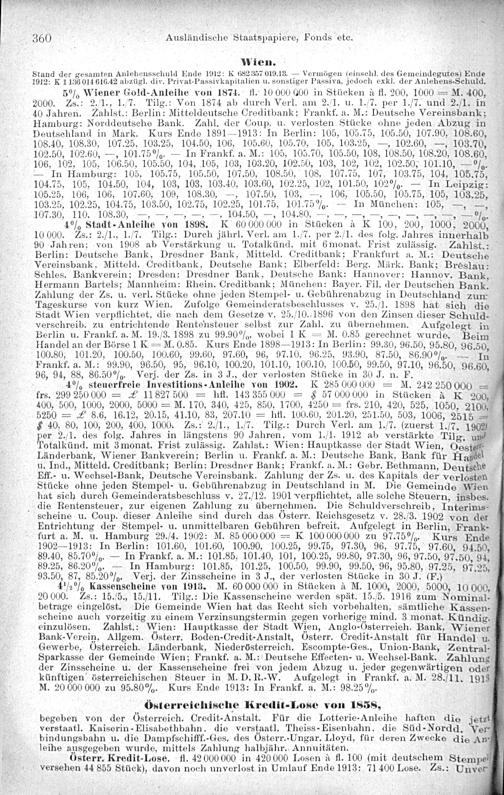 360 Ausländische Staatspapiere, Fonds etc.
Wien.
Stand der gesamten Anlehensschuld Ende 1912: K 682 357 019.13. — Vermögen (einschl. des Gemeindegutes) Ende
1912: K 1 136 014 616.42 abzügl. div. Privat-Passivkapitalien u. sonstiger Passiva, jedoch exkl. der Anlehens-Schuld.
5% Wiener Gold-Anleihe von 1874. fl. 10 000 000 in Stücken à fl. 200, 1000 = M. 400,
2000. Zs.: 2./1., 1./7. Tilg.: Von 1874 ab durch Verl. am 2./1. u. 1./7. per 1./7. und 2./1. in
40 Jahren. Zahlst.: Berlin: Mitteldeutsche Creditbank; Frankf. a. M.: Deutsche Vereinsbank;
Hamburg: Norddeutsche Bank. Zahl. der Coup. u. verlosten Stücke ohne jeden Abzug in
Deutschland in Mark. Kurs Ende 1891—1913: In Berlin: 105, 105.75, 105.50, 107.90, 108.60,
108.40, 108.30, 107.25, 103.25, 104.50, 106, 105.60, 105.70, 105, 103.25, —, 102.60, —, 103.70,
102.50, 102.60, —, 101.75%. — In Frankf. a. M.: 105, 105.70, 105.50, 108, 108.50, 108.20, 108.60,
106, 102, 105, 106.50, 105.50, 104, 105, 103, 103.20, 102.50, 103, 102, 102, 102.50, 101.10, —%.
— In Hamburg: 105, 105.75, 105.50, 107.50, 108.50, 108, 107.75, 107, 103.75, 104, 105.75,
104.75, 105, 104.50, 104, 103, 103, 103.40, 103.60, 102.25, 102, 101.50, 102%. — In Leipzig:
105.25, 106, 106, 107.60, 109, 108.30, —, 107.50, 103, —, 106, 105.50, 105.75, 105, 103.25,
103.25, 102.25, 104.75, 103.50, 102.75, 102.25, 101.75, 101.75%. — In München: 105, —, —,
107.30, 110, 108.30, —, —, —, —, 104.50, —, 104.80, —, —, —, —, —, —, —, —, —, —%.
4% Stadt-Anleihe von 1898. K 60 000 000 in Stücken à K 100, 200, 1000, 2000,
10 000. Zs.: 2./1., 1./7. Tilg.: Durch jährl. Verl. am 1./7. per 2./1. des folg. Jahres innerhalb
90 Jahren; von 1908 ab Verstärkung u. Totalkünd. mit 6monat. Frist zulässig. Zahlst.:
Berlin: Deutsche Bank, Dresdner Bank, Mitteld. Creditbank; Frankfurt a. M.: Deutsche
Vereinsbank, Mitteld. Creditbank, Deutsche Bank; Elberfeld: Berg. Märk. Bank; Breslau:
Schles. Bankverein; Dresden: Dresdner Bank, Deutsche Bank; Hannover: Hannov. Bank,
Hermann Bartels; Mannheim: Rhein. Creditbank; München: Bayer. Fil. der Deutschen Bank.
Zahlung der Zs. u. verl. Stücke ohne jeden Stempel- u. Gebührenabzug in Deutschland zum
Tageskurse von kurz Wien. Zufolge Gemeinderatsbeschlusses v. 25./1. 1898 hat sich die
Stadt Wien verpflichtet, die nach dem Gesetze v. 25./10. 1896 von den Zinsen dieser Schuld-
verschreib. zu entrichtende Rentensteuer selbst zur Zahl. zu übernehmen. Aufgelegt in
Berlin u. Frankf. a. M. 19./3. 1898 zu 99.90%, wobei 1 K = M. 0.85 gerechnet wurde. Beim
Handel an der Börse 1 K = M. 0.85. Kurs Ende 1898—1913: In Berlin: 99.30, 96.50, 95.80, 96.50,
100.80, 101.20, 100.50, 100.60, 99.60, 97.60, 96, 97.10, 96.25, 93.90, 87.50, 86.90%. — In
Frankf. a. M.: 99.90, 96.50, 95, 96.10, 100.20, 101.10, 100.10, 100.50, 99.50, 97.10, 96.50, 96.60,
96, 94, 88, 86.50%. Verj. der Zs. in 3 J., der verlosten Stücke in 30 J. n. F.
4% steuerfreie Investitions-Anleihe von 1902. K 285 000 000 = M. 242 250 000 =
frs. 299 250 000 = £ 11 827 500 = hfl. 143 355 000 = $ 57 000 000 in Stücken à K 200,
400, 500, 1000, 2000, 5000 = M. 170, 340, 425, 850, 1700, 4250 = frs. 210, 420, 525, 1050, 2100,
5250 = £ 8.6, 16.12, 20.15, 41.10, 83, 207.10 = hfl. 100.60, 201.20, 251.50, 503, 1006, 2515 =
$ 40, 80, 100, 200, 400, 1000. Zs.: 2./1., 1./7. Tilg.: Durch Verl. am 1./7. (zuerst 1./7. 1902)
per 2./1. des folg. Jahres in längstens 90 Jahren, vom 1./1. 1912 ab verstärkte Tilg. und
Totalkünd. mit 3monat. Frist zulässig. Zahlst.: Wien: Hauptkasse der Stadt Wien, Oesterr.
Länderbank, Wiener Bankverein; Berlin u. Frankf. a. M.: Deutsche Bank, Bank für Handel
u. Ind., Mitteld. Creditbank; Berlin: Dresdner Bank; Frankf. a. M.: Gebr. Bethmann, Deutsche
Eff.- u. Wechsel-Bank, Deutsche Vereinsbank. Zahlung der Zs. u. des Kapitals der verlosten
Stücke ohne jeden Stempel- u. Gebührenabzug in Deutschland in M. Die Gemeinde Wien
hat sich durch Gemeinderatsbeschluss v. 27./12. 1901 verpflichtet, alle solche Steuern, insbes.
die Rentensteuer, zur eigenen Zahlung zu übernehmen. Die Schuldverschreib., Interims-
scheine u. Coup. dieser Anleihe sind durch das Österr. Reichsgesetz v. 28./3. 1902 von der
Entrichtung der Stempel- u. unmittelbaren Gebühren befreit. Aufgelegt in Berlin, Frank-
furt a. M. u. Hamburg 29./4. 1902: M. 85 000 000 = K 100 000 000 zu 97.75%. Kurs Ende
1902—1913: In Berlin: 101.60, 101.60, 100.90, 100.25, 99.75, 97.30, 96, 97.75, 97.60, 94.50,
89.40, 85.70%. — In Frankf. a. M.: 101.85, 101.40, 101, 100.25, 99.80, 97.30, 96, 97.50, 97.50, 94,
89.25, 86.20%. — In Hamburg: 101.85, 101.25, 100.50, 99.90, 99.50, 96, 95.80, 97.25, 97.25,
93.50, 87, 85.20%. Verj. der Zinsscheine in 3 J., der verlosten Stücke in 30 J. (F.)
4½% Kassenscheine von 1913. M. 60 000 000 in Stücken à M. 1000, 2000, 5000, 10 000,
20 000. Zs.: 15./5., 15./11. Tilg.: Die Kassenscheine werden spät. 15./5. 1916 zum Nominal-
betrage eingelöst. Die Gemeinde Wien hat das Recht sich vorbehalten, sämtliche Kassen-
scheine auch vorzeitig zu einem Verzinsungstermin gegen vorherig mind. 3 monat. Kündig.
einzulösen. Zahlst.: Wien: Hauptkasse der Stadt Wien, Anglo-Österreich. Bank, Wiener
Bank-Verein, Allgem. Österr. Boden-Credit-Anstalt, Österr. Credit-Anstalt für Handel u.
Gewerbe, Österreich. Länderbank, Niederösterreich. Escompte-Ges., Union-Bank, Zentral-
Sparkasse der Gemeinde Wien; Frankf. a. M.: Deutsche Effecten- u. Wechsel-Bank. Zahlung
der Zinsscheine u. der Kassenscheine frei von jedem Abzug u. jeder gegenwärtigen oder
künftigen österreichischen Steuer in M. D. R.-W. Aufgelegt in Frankf. a. M. 28./11. 1913
M. 20 000 000 zu 95.80%. Kurs Ende 1913: In Frankf. a. M.: 98.25%.
Österreichische Kredit-Lose von 1858,
begeben von der Österreich. Credit-Anstalt. Für die Lotterie-Anleihe haften die jetzt
verstaatl. Kaiserin-Elisabethbahn, die verstaatl. Theiss-Eisenbahn, die Süd-Nordd. Ver-
bindungsbahn u. die Dampfschifff.-Ges. des Österr.-Ungar. Lloyd, für deren Zwecke die An-
leihe ausgegeben wurde, mittels Zahlung halbjähr. Annuitäten.
Österr. Kredit-Lose. fl. 42 000 000 in 420 000 Losen à fl. 100 (mit deutschem Stempel
versehen 44 855 Stück), davon noch unverlost in Umlauf Ende 1913: 71 400 Lose. Zs.: Unver-